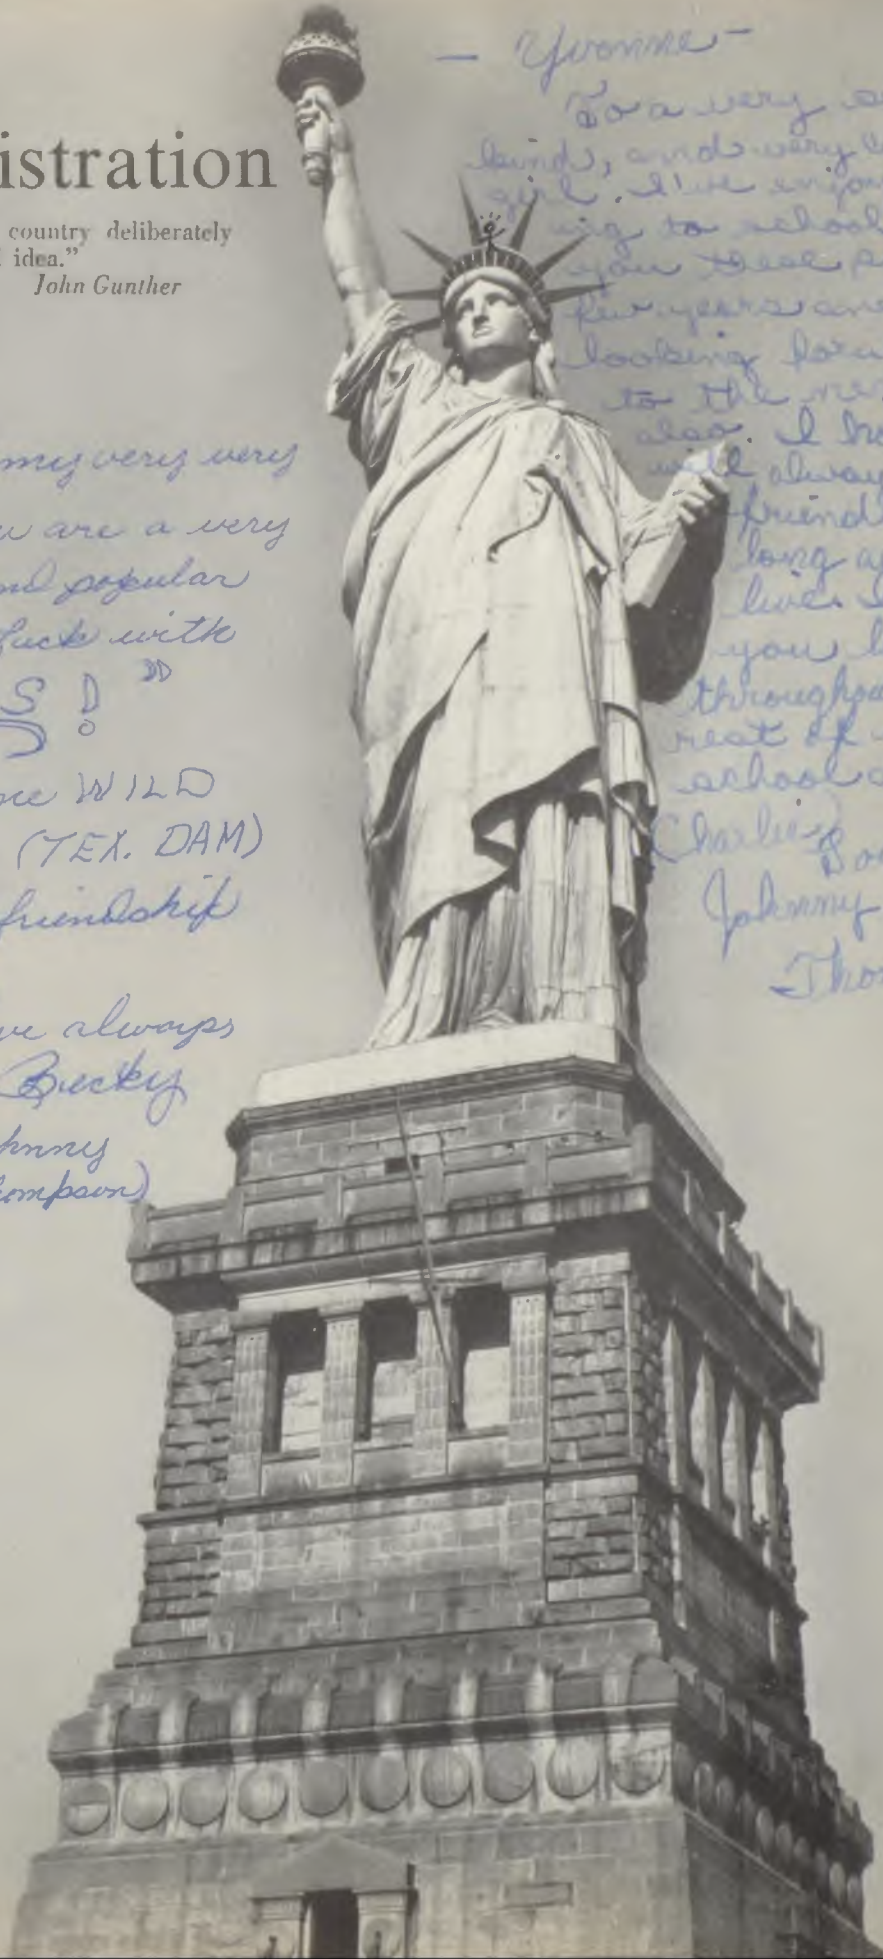 istration
country deliberately
idea."
John Gunther
my very very
u are a very
nd popular
luck with
S !"
ce WILD
(TEX. DAM)
friendship
ve always
Becky
hnny
ompson)
- Yvonne -
To a very
kind, and very
girl. I've enjoy
ing to school
you these p
few years and
looking forw
to the nex
also. I ho
will always
friends
long a
live. I
you l
throughou
rest of
school
(Charlie)
Johnny
Thom